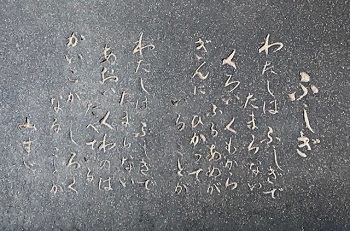 ふしぎ
わたしは ふしぎで
たまらない
くろいくもから
ふるあめが
ぎんに ひかって
いることが
わたしは ふしぎで
たまらない
あおい くわのは
たべている
かいこが しろく
なることが